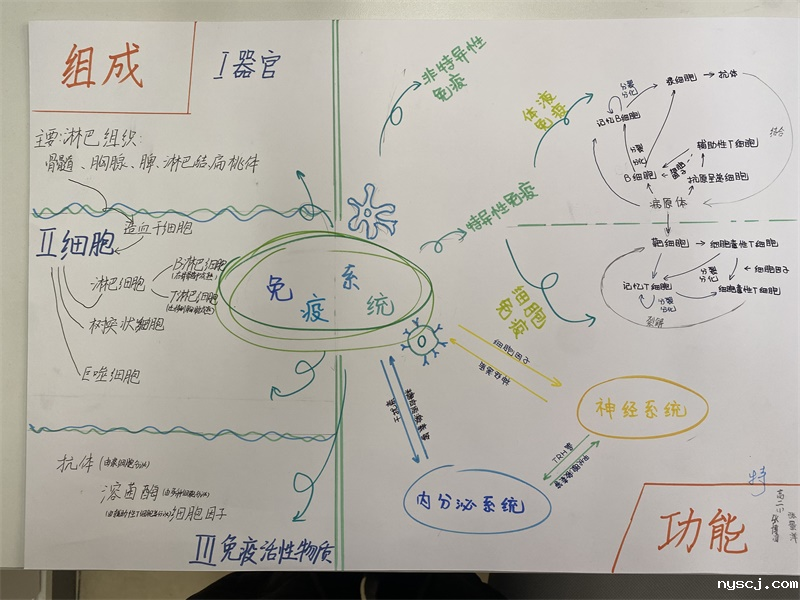 组成
I 器官
主要:淋巴组织:
骨髓、胸腺、脾、淋巴结、扁桃体
造血干细胞
II 细胞
淋巴细胞
B淋巴细胞
T淋巴细胞
树换状细胞
巨噬细胞
抗体 (由浆细胞分泌)
溶菌酶
细胞因子
III 免疫活性物质
免疫系统
非特异性
免疫
特异性免疫
体液
免疫
浆细胞
抗体
分裂
分化
记忆B细胞
结合
分裂
分化
辅助性T细胞
B细胞
抗原呈递细胞
病原体
靶细胞
细胞毒性T细胞
分裂
分化
细胞因子
记忆T细胞
细胞毒性T细胞
分裂
分化
裂解
细胞
免疫
细胞因子
神经系统
TRH等
内分泌系统
功能
特
高二(1)
nyscj.com